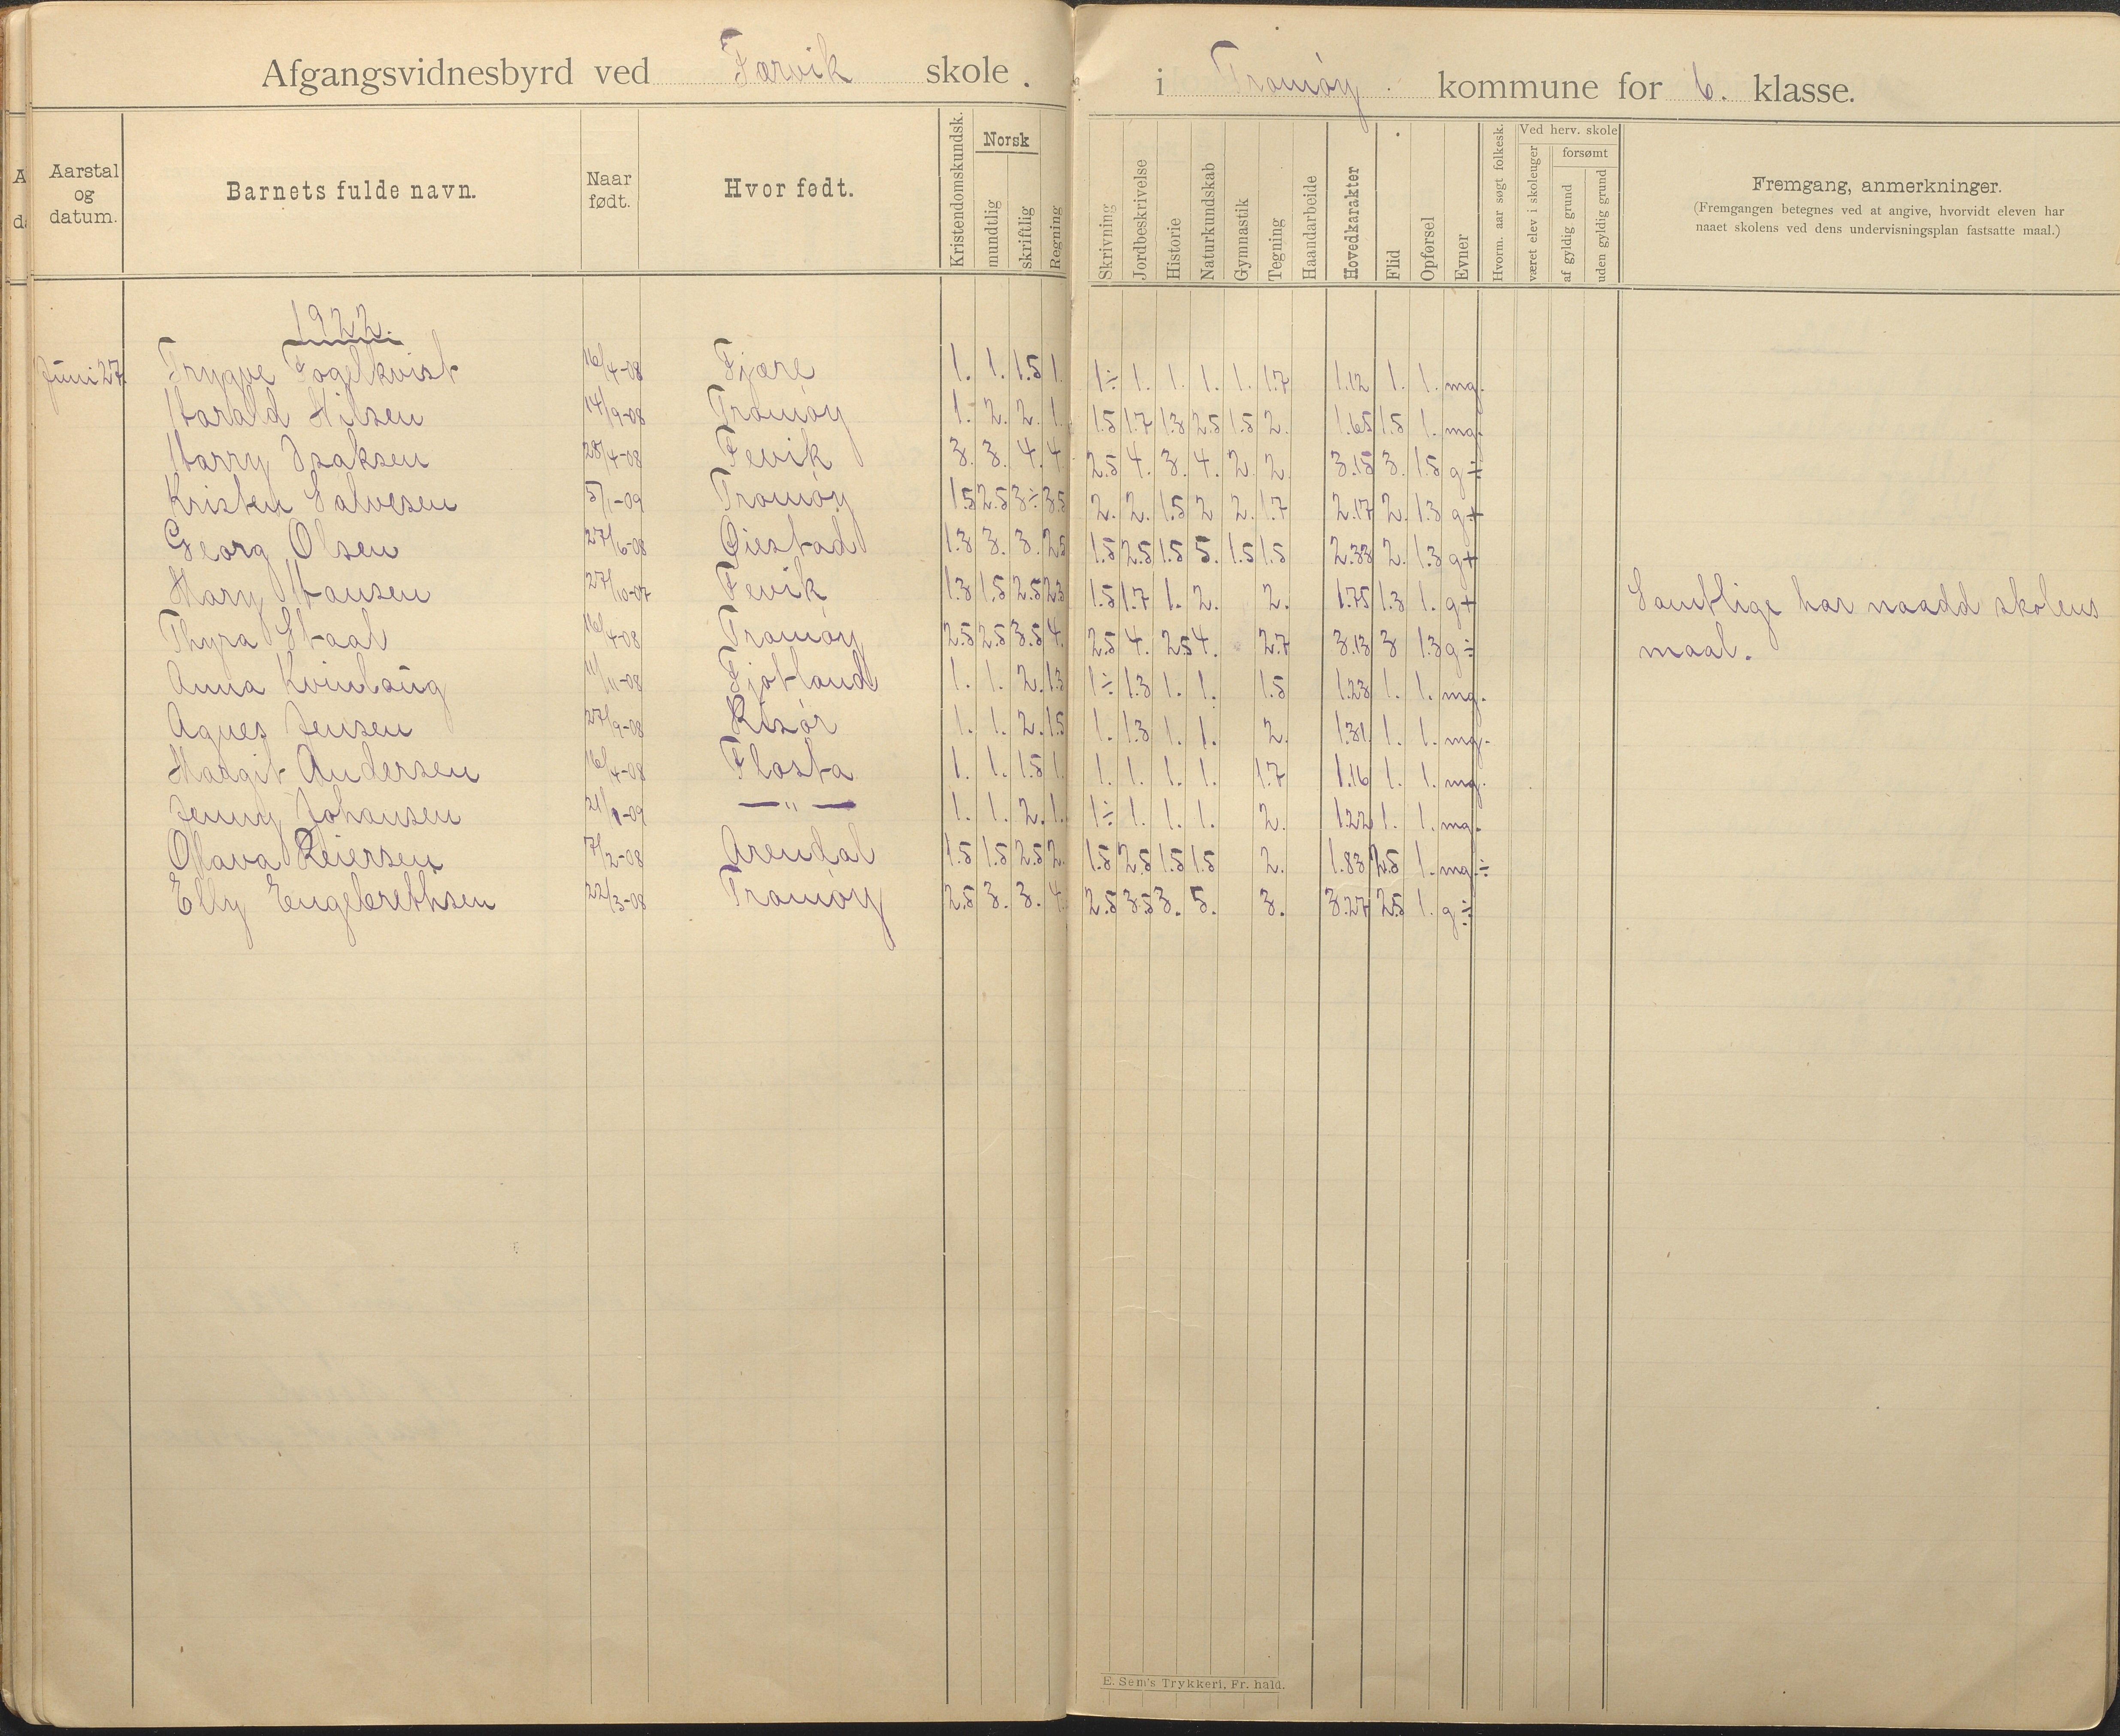 Afgangsvidnesbyrd ved Færvik skole. i Tromøy kommune for 6. klasse.
Aarstal og datum. Barnets fulde navn. Naar født. Hvor født. Kristendomskundsk. Norsk mundtlig skriftlig Regning Skrivning Jordbeskrivelse Historie Naturkundskab Gymnastik Tegning Haandarbeide Hovedkarakter Flid Opførsel Evner Hvorm. aar søgt folkesk. Ved herv. skole været elev i skoleuger forsømt af gyldig grund uden gyldig grund Fremgang, anmerkninger.
(Fremgangen betegnes ved at angive, hvorvidt eleven har
naaet skolens ved dens undervisningsplan fastsatte maal.)
1922.
Juni 27. Trygve Fogelkvist 16/4-08 Fjære 1. 1. 1.5 1. 1÷ 1. 1. 1. 1. 1.7 1.12 1. 1. mg.
Harald Nilsen 14/9-08 Tromøy 1. 2. 2. 1. 1.5 1.7 1.3 2.5 1.5 2. 1.65 1.5 1. mg.
Harry Isaksen 28/4-08 Fevik 3. 3. 4. 4. 2.5 4. 3. 4. 2. 2. 3.15 3. 1.5 g÷
Kristen Salvesen 5/1-09 Tromøy 1.5 2.5 3÷ 3.5 2. 2. 1.5 2 2. 1.7 2.17 2. 1.3 g+
Georg Olsen 27/6-08 Øiestad 1.3 3. 3. 2.5 1.5 2.5 1.5 5. 1.5 1.5 2.33 2. 1.3 g+
Mary Hansen 27/10-07 Fevik 1.3 1.5 2.5 2.3 1.5 1.7 1. 2. 2. 1.75 1.3 1. g+ Samtlige har naadd skolens
Thyra Staal 16/4-08 Tromøy 2.5 2.5 3.5 4. 2.5 4. 2.5 4. 2.7 3.13 3 1.3 g÷ maal.
Anna Kvinlaug 11/11-08 Fjotland 1. 1. 2. 1.3 1÷ 1.3 1. 1. 1.5 1.23 1. 1. mg.
Agnes Jensen 27/9-08 Risør 1. 1. 2. 1.5 1. 1.3 1. 1. 2. 1.31 1. 1. mg.
Margit Andersen 16/4-08 Flosta 1. 1. 1.5 1. 1. 1. 1. 1. 1.7 1.16 1. 1. mg.
Jenny Johansen 21/1-09 — " — 1. 1. 2. 1. 1÷ 1. 1. 1. 2. 1.22 1. 1. mg.
Olava Reiersen 7/2-08 Arendal 1.5 1.5 2.5 2. 1.5 2.5 1.5 1.5 2. 1.83 2.5 1. mg.÷
Elly Engebrethsen 22/3-08 Tromøy 2.5 3. 3. 4. 2.5 3.5 3. 5. 3. 3.27 2.5 1. g÷
E. Sem's Trykkeri, Fr. hald.